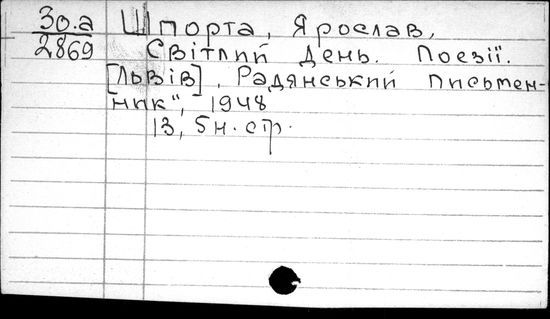 30.a
2869
Шпорта, Ярослав,
Світлий день. Поезії.
[Львів], Радянський письмен-
ник", 1948
13, 5н. стр.